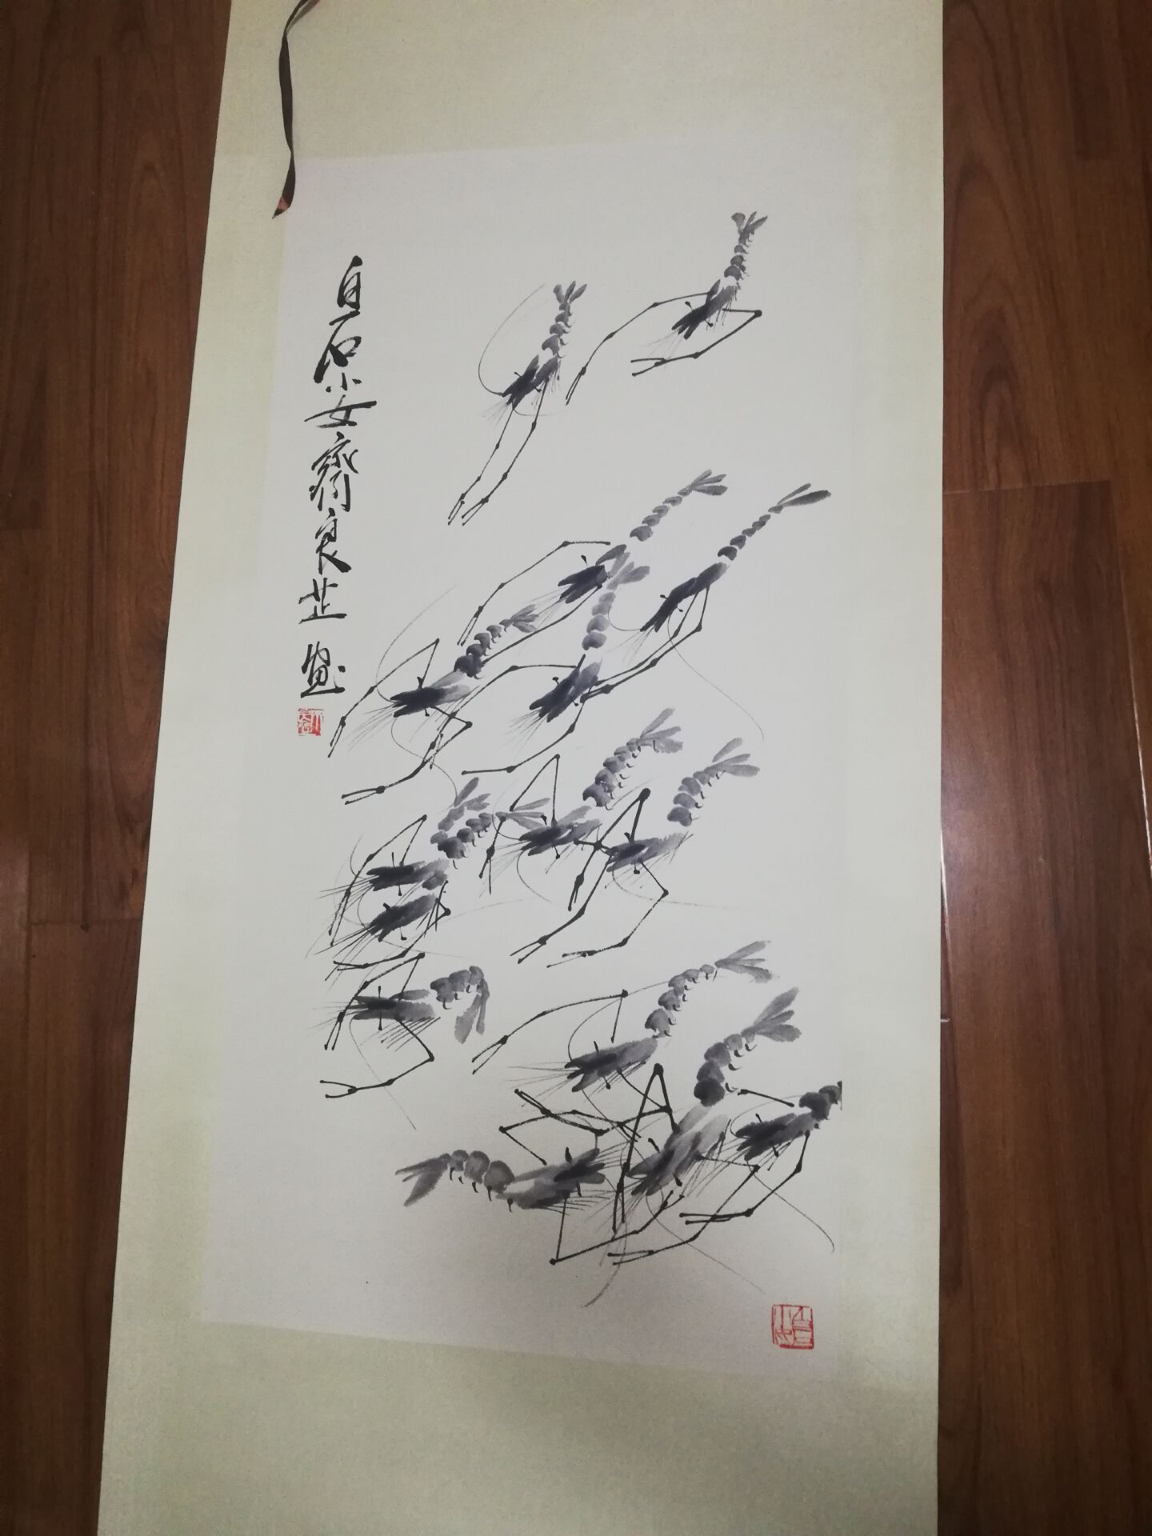 白石小女齊良芷画